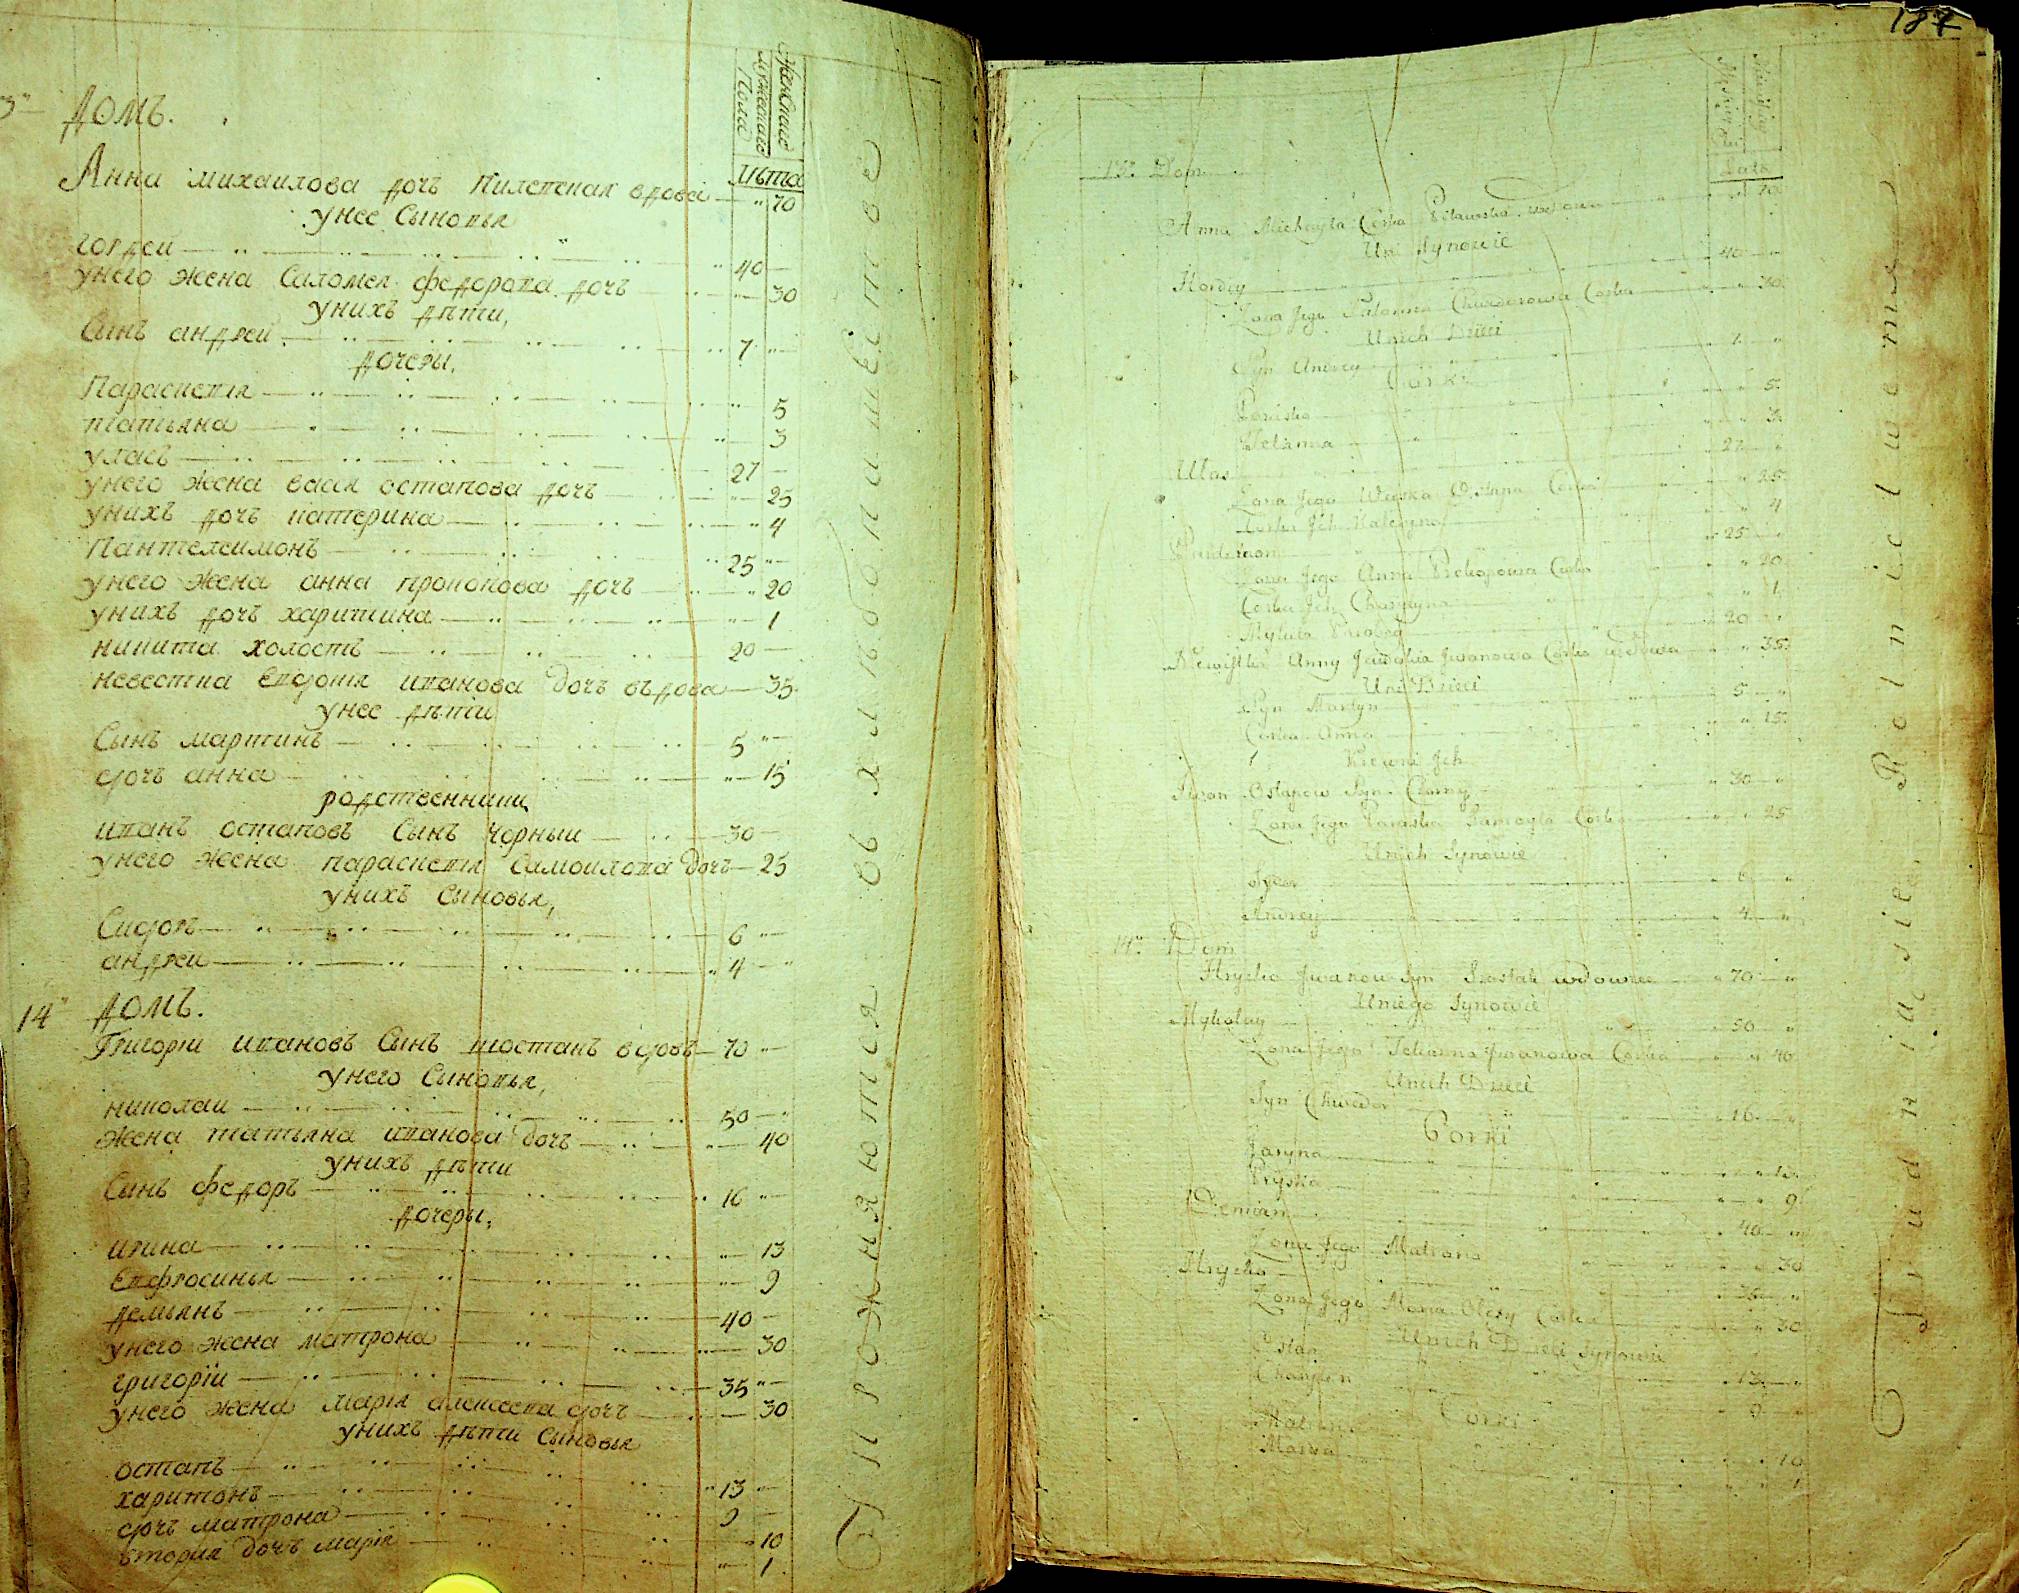 Женские
мужеские
Пола
Лѣта
3" Домъ.
Анна михаилова дочь Пилепская вдова — " 70
унее Сыновья
гордей — 40 —
унего жена Саломея федорова дочь — 30
унихъ дѣти,
Сынъ андрей — 7 "
дочеры,
Параскевия — 5
татьяна — 3
уласъ — 27 —
унего жена васса остапова дочь — 25
унихъ дочь катерина — " 4
Пантелеимонъ — 25 "
унего жена анна прокопова дочь — " 20
унихъ дочь харитина — 1
никита холостъ — 20 —
невестка Евдокия иванова дочь въдова — 35
унее дѣти
Сынъ мартинъ — 5 "
дочь анна — " 15
родственники
иванъ остаповъ Сынъ чорный — 30 —
унего жена параскевия Самоилова дочь — 25
унихъ Сыновья,
Сидоръ — 6 "
андрей — " 4 — "
14" Домъ.
Григорій ивановъ Сынъ шостакъ вдовъ — 70 "
унего Сыновья,
николаи — 50 — "
жена татьяна иванова дочь — 40
унихъ дѣти
Синъ федоръ — 16 "
дочеры,
ирина — " 13
Евфросинья — " 9
демьянъ — 40 —
унего жена матрона — 30
григорій — 35 "
унего жена марія алексеева дочь — 30
унихъ дѣти Сыновья
остапъ — " 13 "
харитонъ — 9
дочь матрона — 10
вторая дочь марія — " 1
Упрожняются въ хлѣбопашествѣ
187
Lata
13. Dom
Anna Michayła Corka wdowa 70
Uni Synowie
Hordey 40
Zona Jego Sałomea Chwedorowa Corka 30
Unich Dzieci
Syn Andrey 7
Corki
Paraska 5
Tetianna 3
Ułas 27
Zona Jego Waska Ostapa Corka 25
Corka Jch Kateryna 4
25
Zona Jego Anna Prokopowa Corka 20
Corka Jch Charytyna 1
Mykita 20
Anny Jewdokia Jwanowa Corka wdowa 35
Uni Dzieci
Syn Martyn 5
Corka Anna 15
Krewni Jch
Jwan Ostapow Syn Czorny 30
Zona Jego Paraska Samoyła Corka 25
Unich Synowie
Sydor 6
Andrey 4
14. Dom
Hryćko Jwanow Syn Szostak wdowiec 70
Uniego Synowie
Mykołay 50
Zona Jego Tetianna Jwanowa Corka 40
Unich Dzieci
Syn Chwedor 16
Corki
Jaryna 13
Pryska 9
Demian 40
Zona Jego Matrona 30
Hryćko 35
Zona Jego Marya Olexy Corka 30
Unich Dzieci Synowie
Ostap 13
Charyton 9
Corki
Matrona 10
Marya 1
Trudnią się Rolnictwem